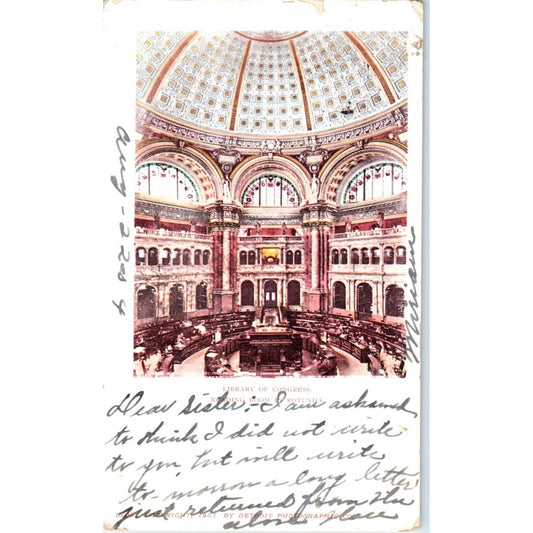 Aug-2 20d
4
Miriam
LIBRARY OF CONGRESS.
READING ROOM IN ROTUNDA.
Dear Sister, I am ashamed
to think I did not write
to you, but will write
to-morrow a long letter
just returned from the
above place
COPYRIGHT, 1901 BY DETROIT PHOTOGRAPHIC